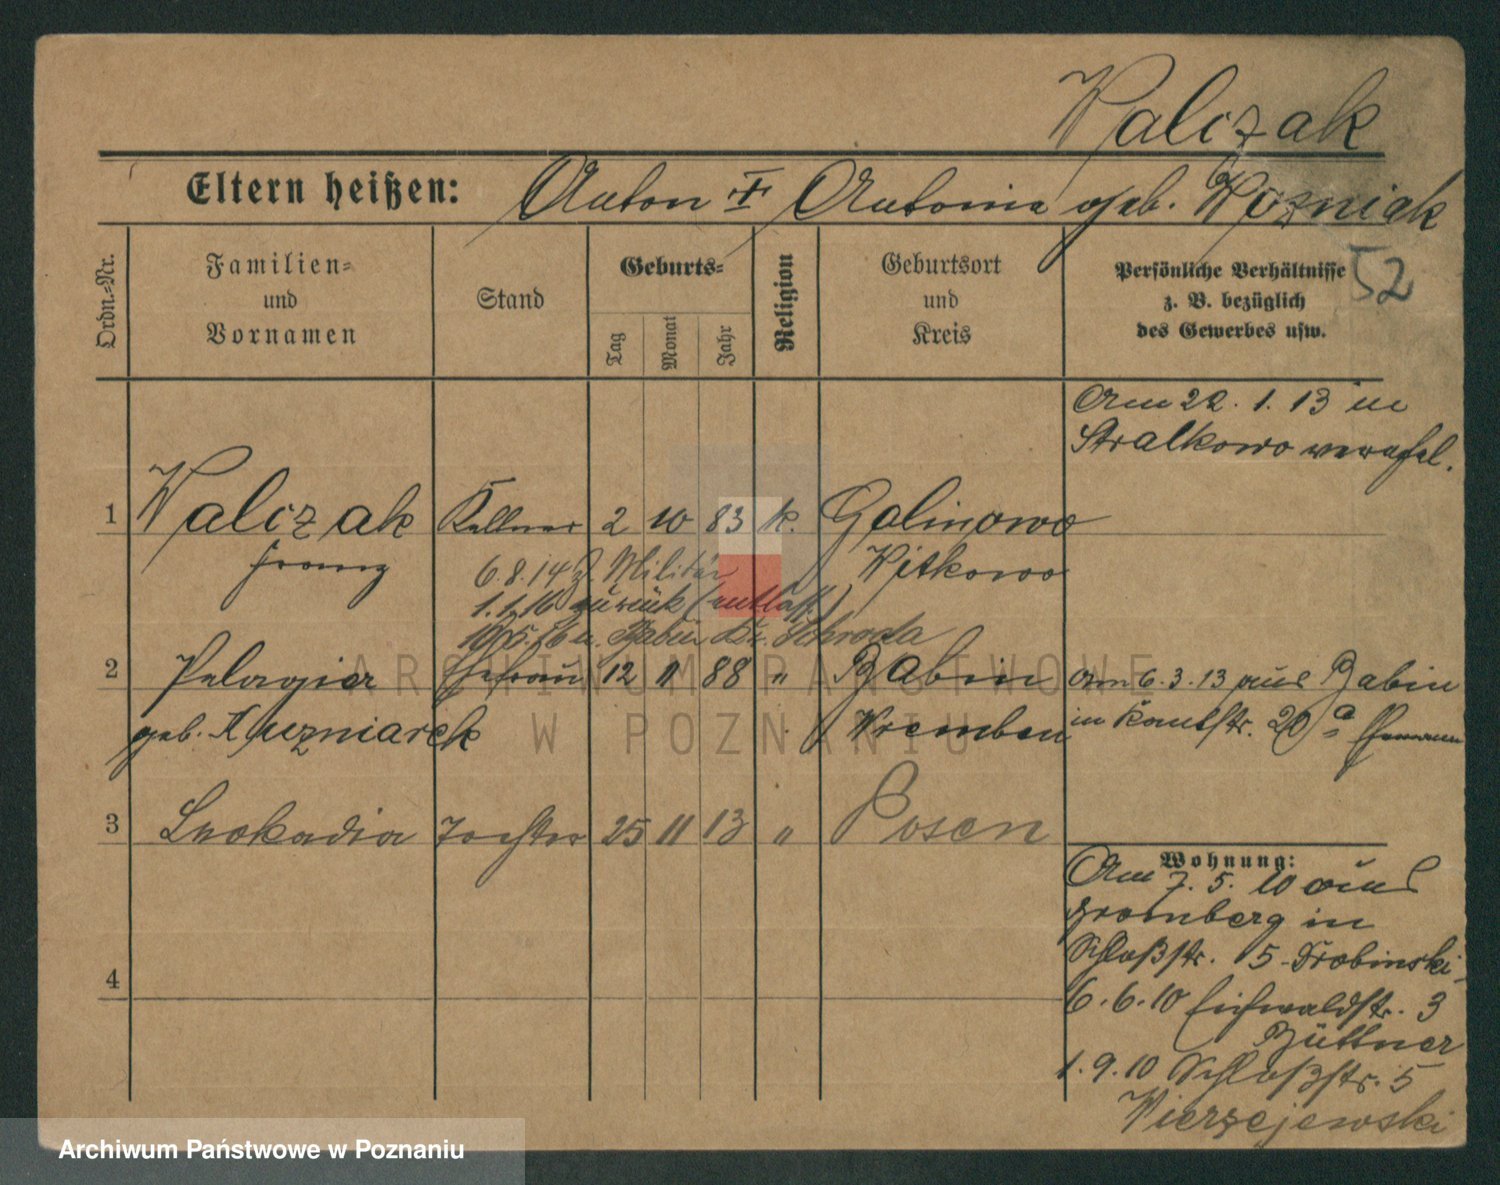 Walczak
Eltern heißen: Anton † Antonie geb. Wozniak
52
Ordn.-Nr.
Familien-
und
Vornamen
Stand
Geburts-
Tag
Monat
Jahr
Religion
Geburtsort
und
Kreis
Persönliche Verhältnisse
z. B. bezüglich
des Gewerbes usw.
Am 22. 1. 13 in
Stralkowo
1 Walczak Kellner 2 10 83 k. Galinowo
Franz Witkowo
6. 8. 14 z. Militär
1. 1. 16 zurück (entlass.)
Babin Kr. Schroda
2 Pelagia Ehefrau 12 11 88 " Babin
geb. Kuzniarek Wremben
am 6. 3. 13 aus Babin
in Kantstr. 20a Ehemann
3 Leokadia Tochter 25 11 13 " Posen
4
Wohnung:
Am 7. 5. 10 aus
in
Schloßstr. 5 - Drobinski
6. 6. 10 Eichwaldstr. 3
Büttner
1. 9. 10 Schloßstr. 5
Wierzejewski
ARCHIWUM PAŃSTWOWE
W POZNANIU
Archiwum Państwowe w Poznaniu